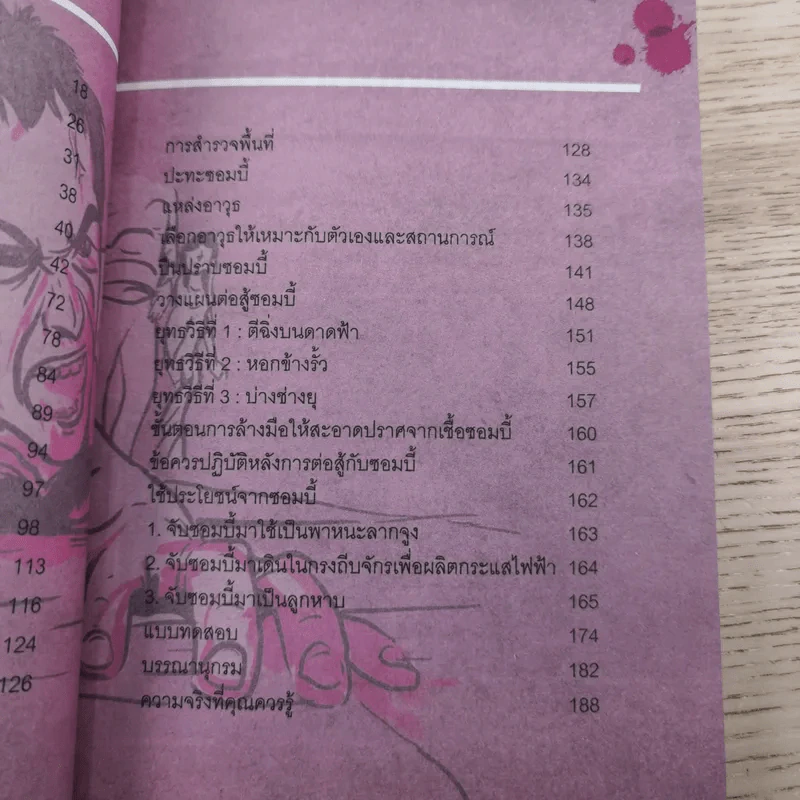 18
26
31
38
40
42
72
78
84
89
94
97
98
113
116
124
126
การสำรวจพื้นที่ 128
ปะทะซอมบี้ 134
แหล่งอาวุธ 135
เลือกอาวุธให้เหมาะกับตัวเองและสถานการณ์ 138
ปืนปราบซอมบี้ 141
วางแผนต่อสู้ซอมบี้ 148
ยุทธวิธีที่ 1 : ตีฉิ่งบนดาดฟ้า 151
ยุทธวิธีที่ 2 : หอกข้างรั้ว 155
ยุทธวิธีที่ 3 : บ่างช่างยุ 157
ขั้นตอนการล้างมือให้สะอาดปราศจากเชื้อซอมบี้ 160
ข้อควรปฏิบัติหลังการต่อสู้กับซอมบี้ 161
ใช้ประโยชน์จากซอมบี้ 162
1. จับซอมบี้มาใช้เป็นพาหนะลากจูง 163
2. จับซอมบี้มาเดินในกรงถีบจักรเพื่อผลิตกระแสไฟฟ้า 164
3. จับซอมบี้มาเป็นลูกหาบ 165
แบบทดสอบ 174
บรรณานุกรม 182
ความจริงที่คุณควรรู้ 188